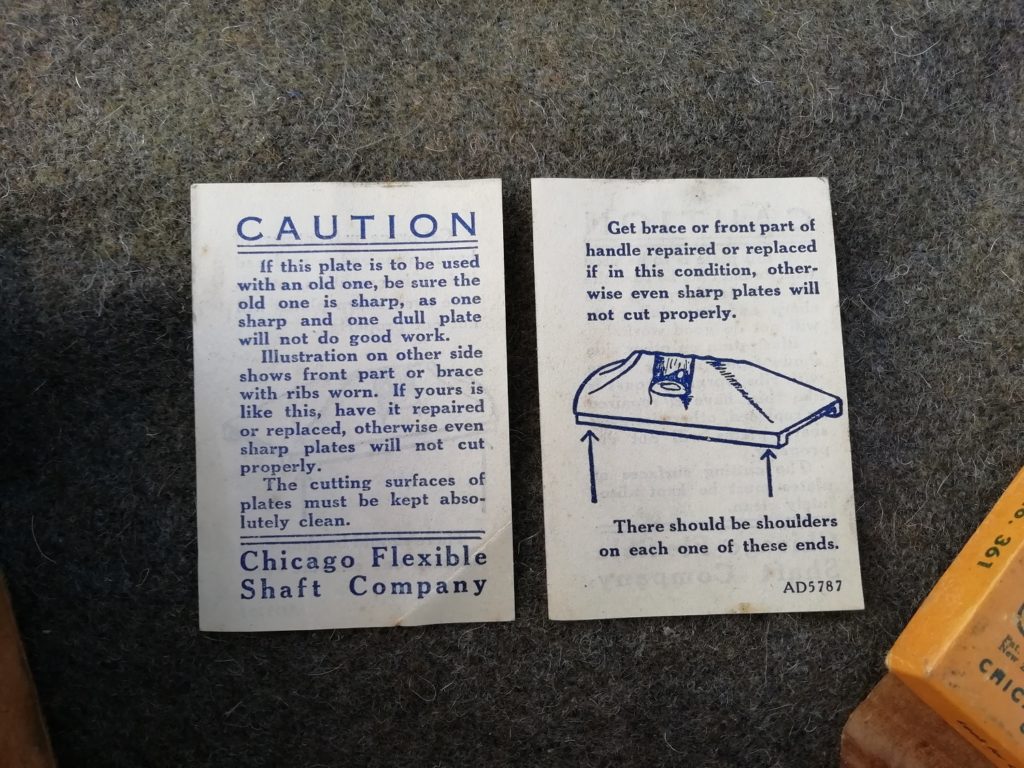 CAUTION
If this plate is to be used
with an old one, be sure the
old one is sharp, as one
sharp and one dull plate
will not do good work.
Illustration on other side
shows front part or brace
with ribs worn. If yours is
like this, have it repaired
or replaced, otherwise even
sharp plates will not cut
properly.
The cutting surfaces of
plates must be kept abso-
lutely clean.
Chicago Flexible
Shaft Company
Get brace or front part of
handle repaired or replaced
if in this condition, other-
wise even sharp plates will
not cut properly.
There should be shoulders
on each one of these ends.
AD5787
361